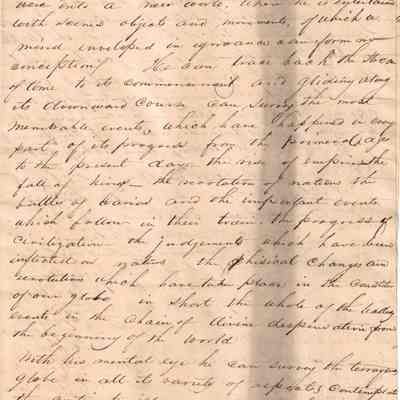 were into a new world. Where he is entertained
with scenes objects and movements, of which a
mind enveloped in ignorance can form no
conception. He can trace back the stream
of time to its commencement and gliding along
its downward course can survey the most
memorable events which have happened in every
part of its progress from the primeval ages
to the present day the rise of empires the
fall of kings the revolution of nations the
battles of warriors and the important events
which follow in their train. the progress of
civilization the judgements which have been
inflicted on nations the phisical changes and
revolutions which have taken place in the
of our globe in short the whole of the leading
events in the chain of divine despensation from
the beginning of the world.
With his mental eye he can survey the
globe in all its variety of aspects contemplate